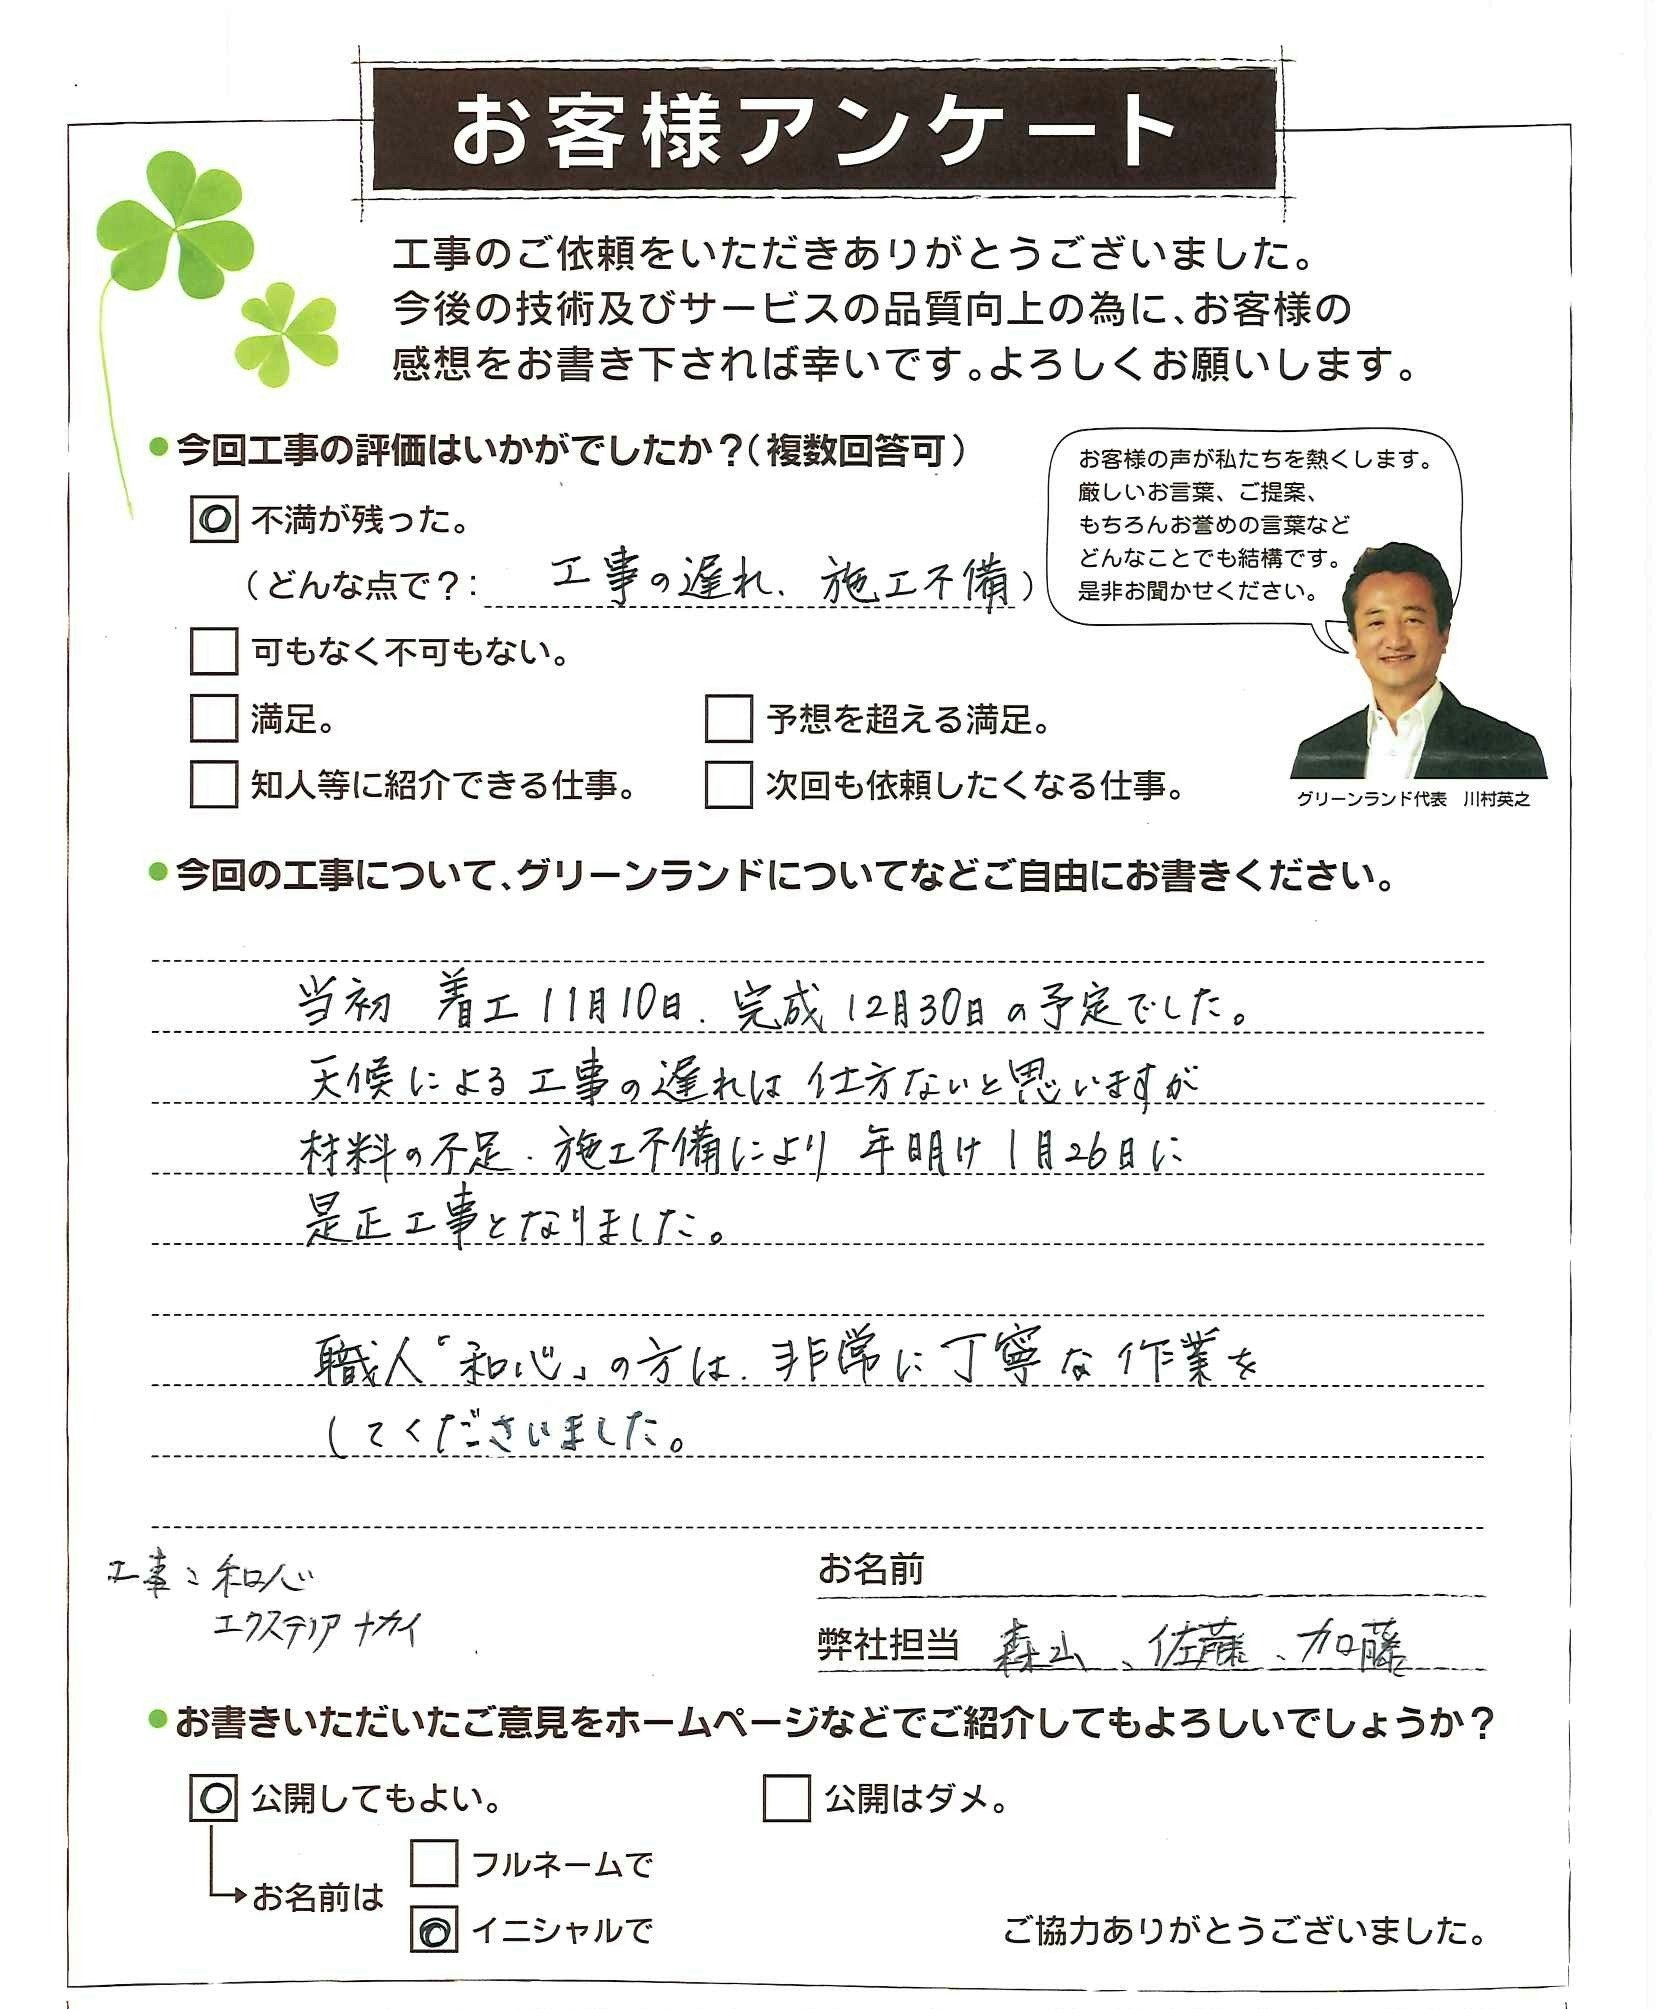 お客様アンケート
工事のご依頼をいただきありがとうございました。
今後の技術及びサービスの品質向上の為に、お客様の
感想をお書き下されば幸いです。よろしくお願いします。
●今回工事の評価はいかがでしたか？（複数回答可）
お客様の声が私たちを熱くします。
厳しいお言葉、ご提案、
もちろんお誉めの言葉など
どんなことでも結構です。
是非お聞かせください。
グリーンランド代表　川村英之
不満が残った。
（どんな点で？：工事の遅れ、施工不備）
可もなく不可もない。
満足。　予想を超える満足。
知人等に紹介できる仕事。　次回も依頼したくなる仕事。
●今回の工事について、グリーンランドについてなどご自由にお書きください。
当初　着工11月10日、完成12月30日の予定でした。
天候による工事の遅れは仕方ないと思いますが
材料の不足・施工不備により年明け1月26日に
是正工事となりました。
職人「和心」の方は、非常に丁寧な作業を
してくださいました。
工事：和心
エクステリアナカイ
お名前
弊社担当　森山、佐藤、加藤
●お書きいただいたご意見をホームページなどでご紹介してもよろしいでしょうか？
公開してもよい。　公開はダメ。
お名前は
フルネームで
イニシャルで
ご協力ありがとうございました。